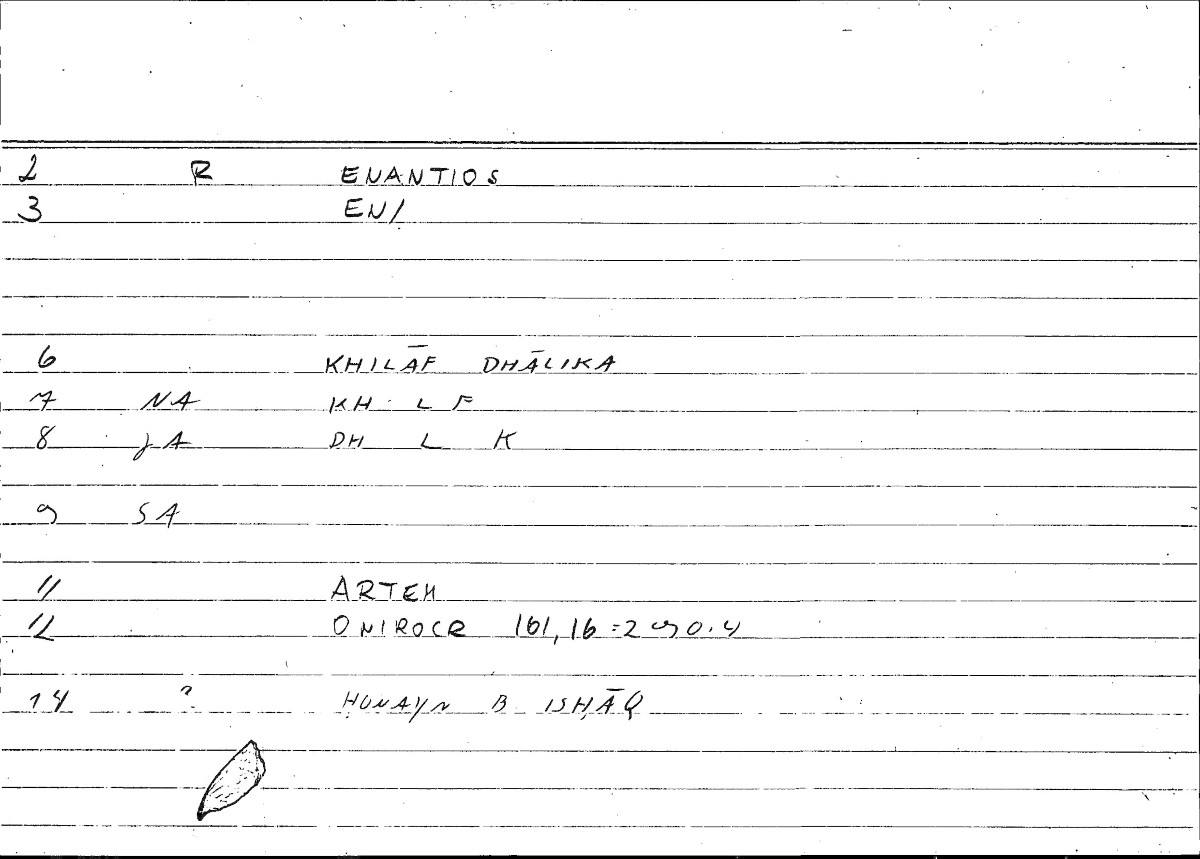 2 R ENANTIOS
3 EN/
6 KHILĀF DHĀLIKA
7 NA KH L F
8 JA DH L K
9 SA
11 ARTEM
12 ONIROCR 161,16 = 290.4
14 ? ḤUNAYN B ISḤĀQ